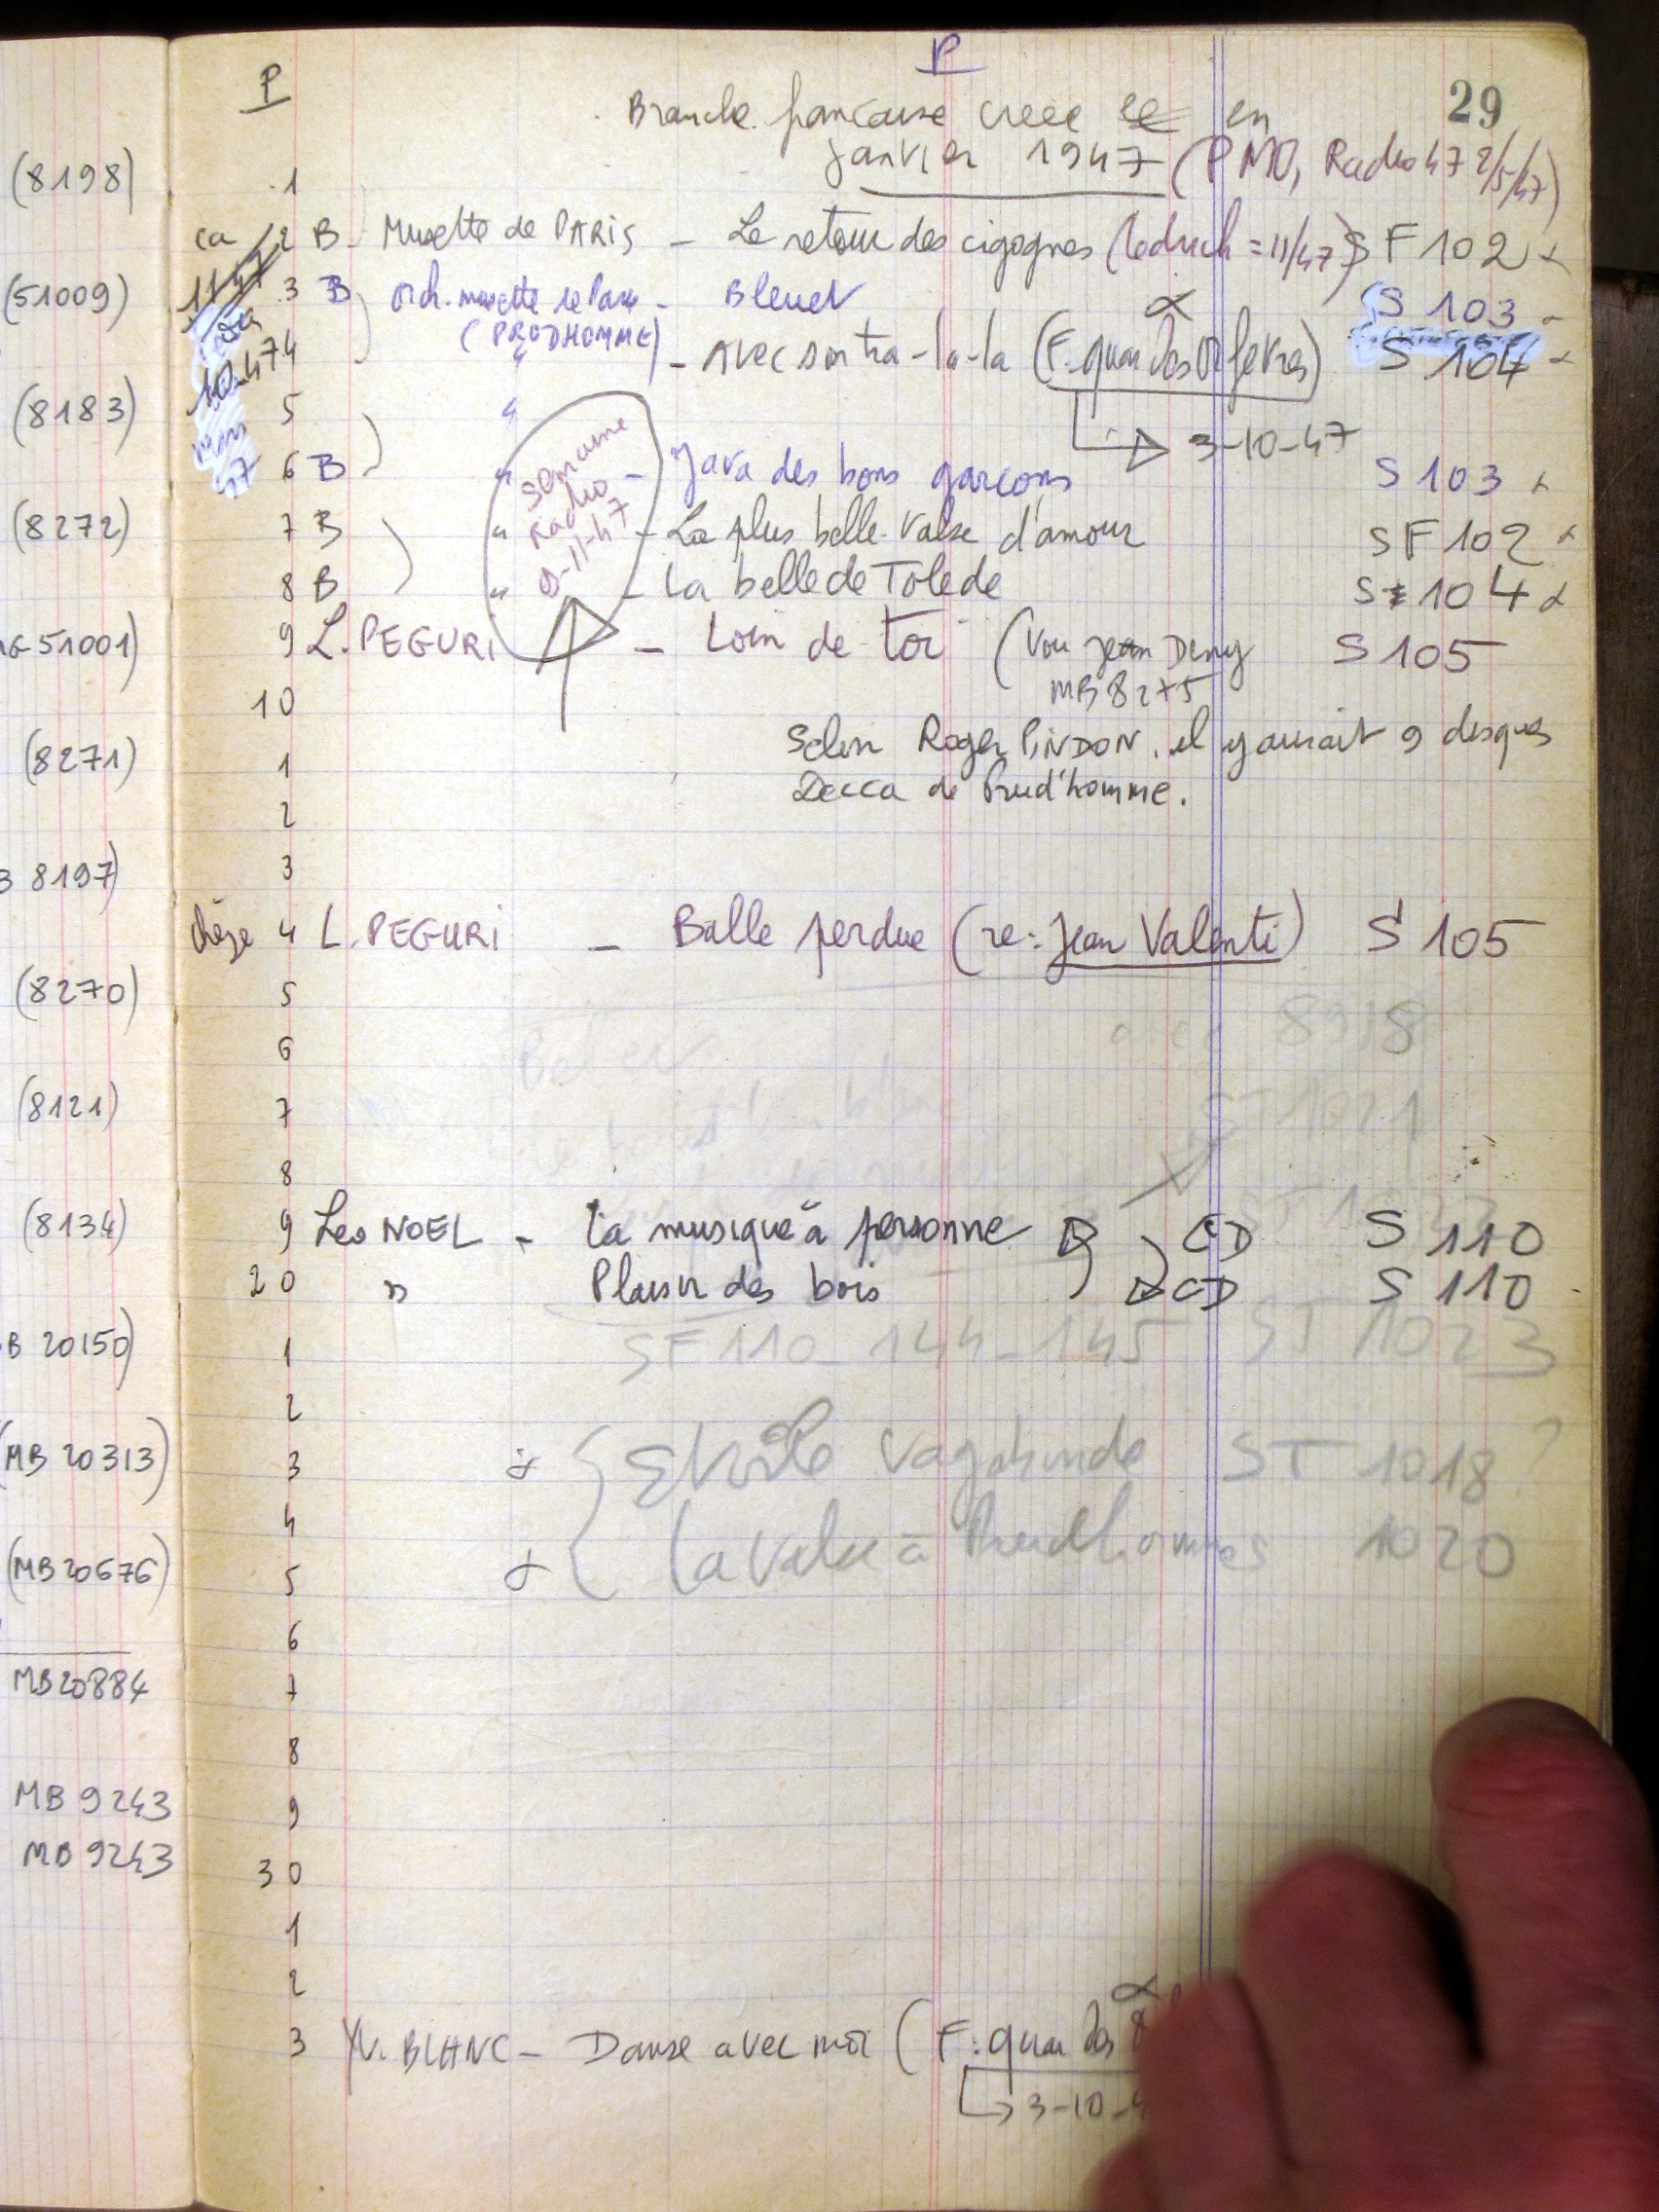 P
P
29
Branche française créée en
janvier 1947 (PMO, Radio 47 2/5/47)
1
ca 2 B Musette de PARIS – Le retour des cigognes ( = 11/47) SF 102
11-47 3 B Orch. musette de Paris – Bleuet S 103
(PRUDHOMME)
10-47 4 – Avec son tra-la-la (F. quai des Orfèvres) S 104
→ 3-10-47
5 "
6 B " – Java des bons garçons S 103
mars 47
Semaine
Radio
9-11-47
7 B " – La plus belle valse d'amour SF 102
8 B " – La belle de Tolède S 104
9 L. PEGURI – Loin de toi (Voir Jean Deny S 105
MB 8275
10
Selon Roger PINDON, il y aurait 9 disques
1
Decca de Prud'homme.
2
3
4 L. PEGURI – Balle perdue (re: Jean Valenti) S 105
5
8918
6
7
ST 1021
8
9 Leo NOEL – La musique à personne CD S 110
20 " Plaisir des bois CD S 110
1 SF 110 – 144 – 145 ST 1023
2
3 Etoile vagabonde ST 1018 ?
4
5 La Valse à Prudhommes 1020
6
7
8
9
30
1
2
3 Yv. BLANC – Danse avec moi (F. quai des
→ 3-10-4
(8198)
(51009)
(8183)
(8272)
51001)
(8271)
8197)
(8270)
(8121)
(8134)
B 20150)
(MB 20313)
(MB 20676)
MB 20884
MB 9243
MB 9243